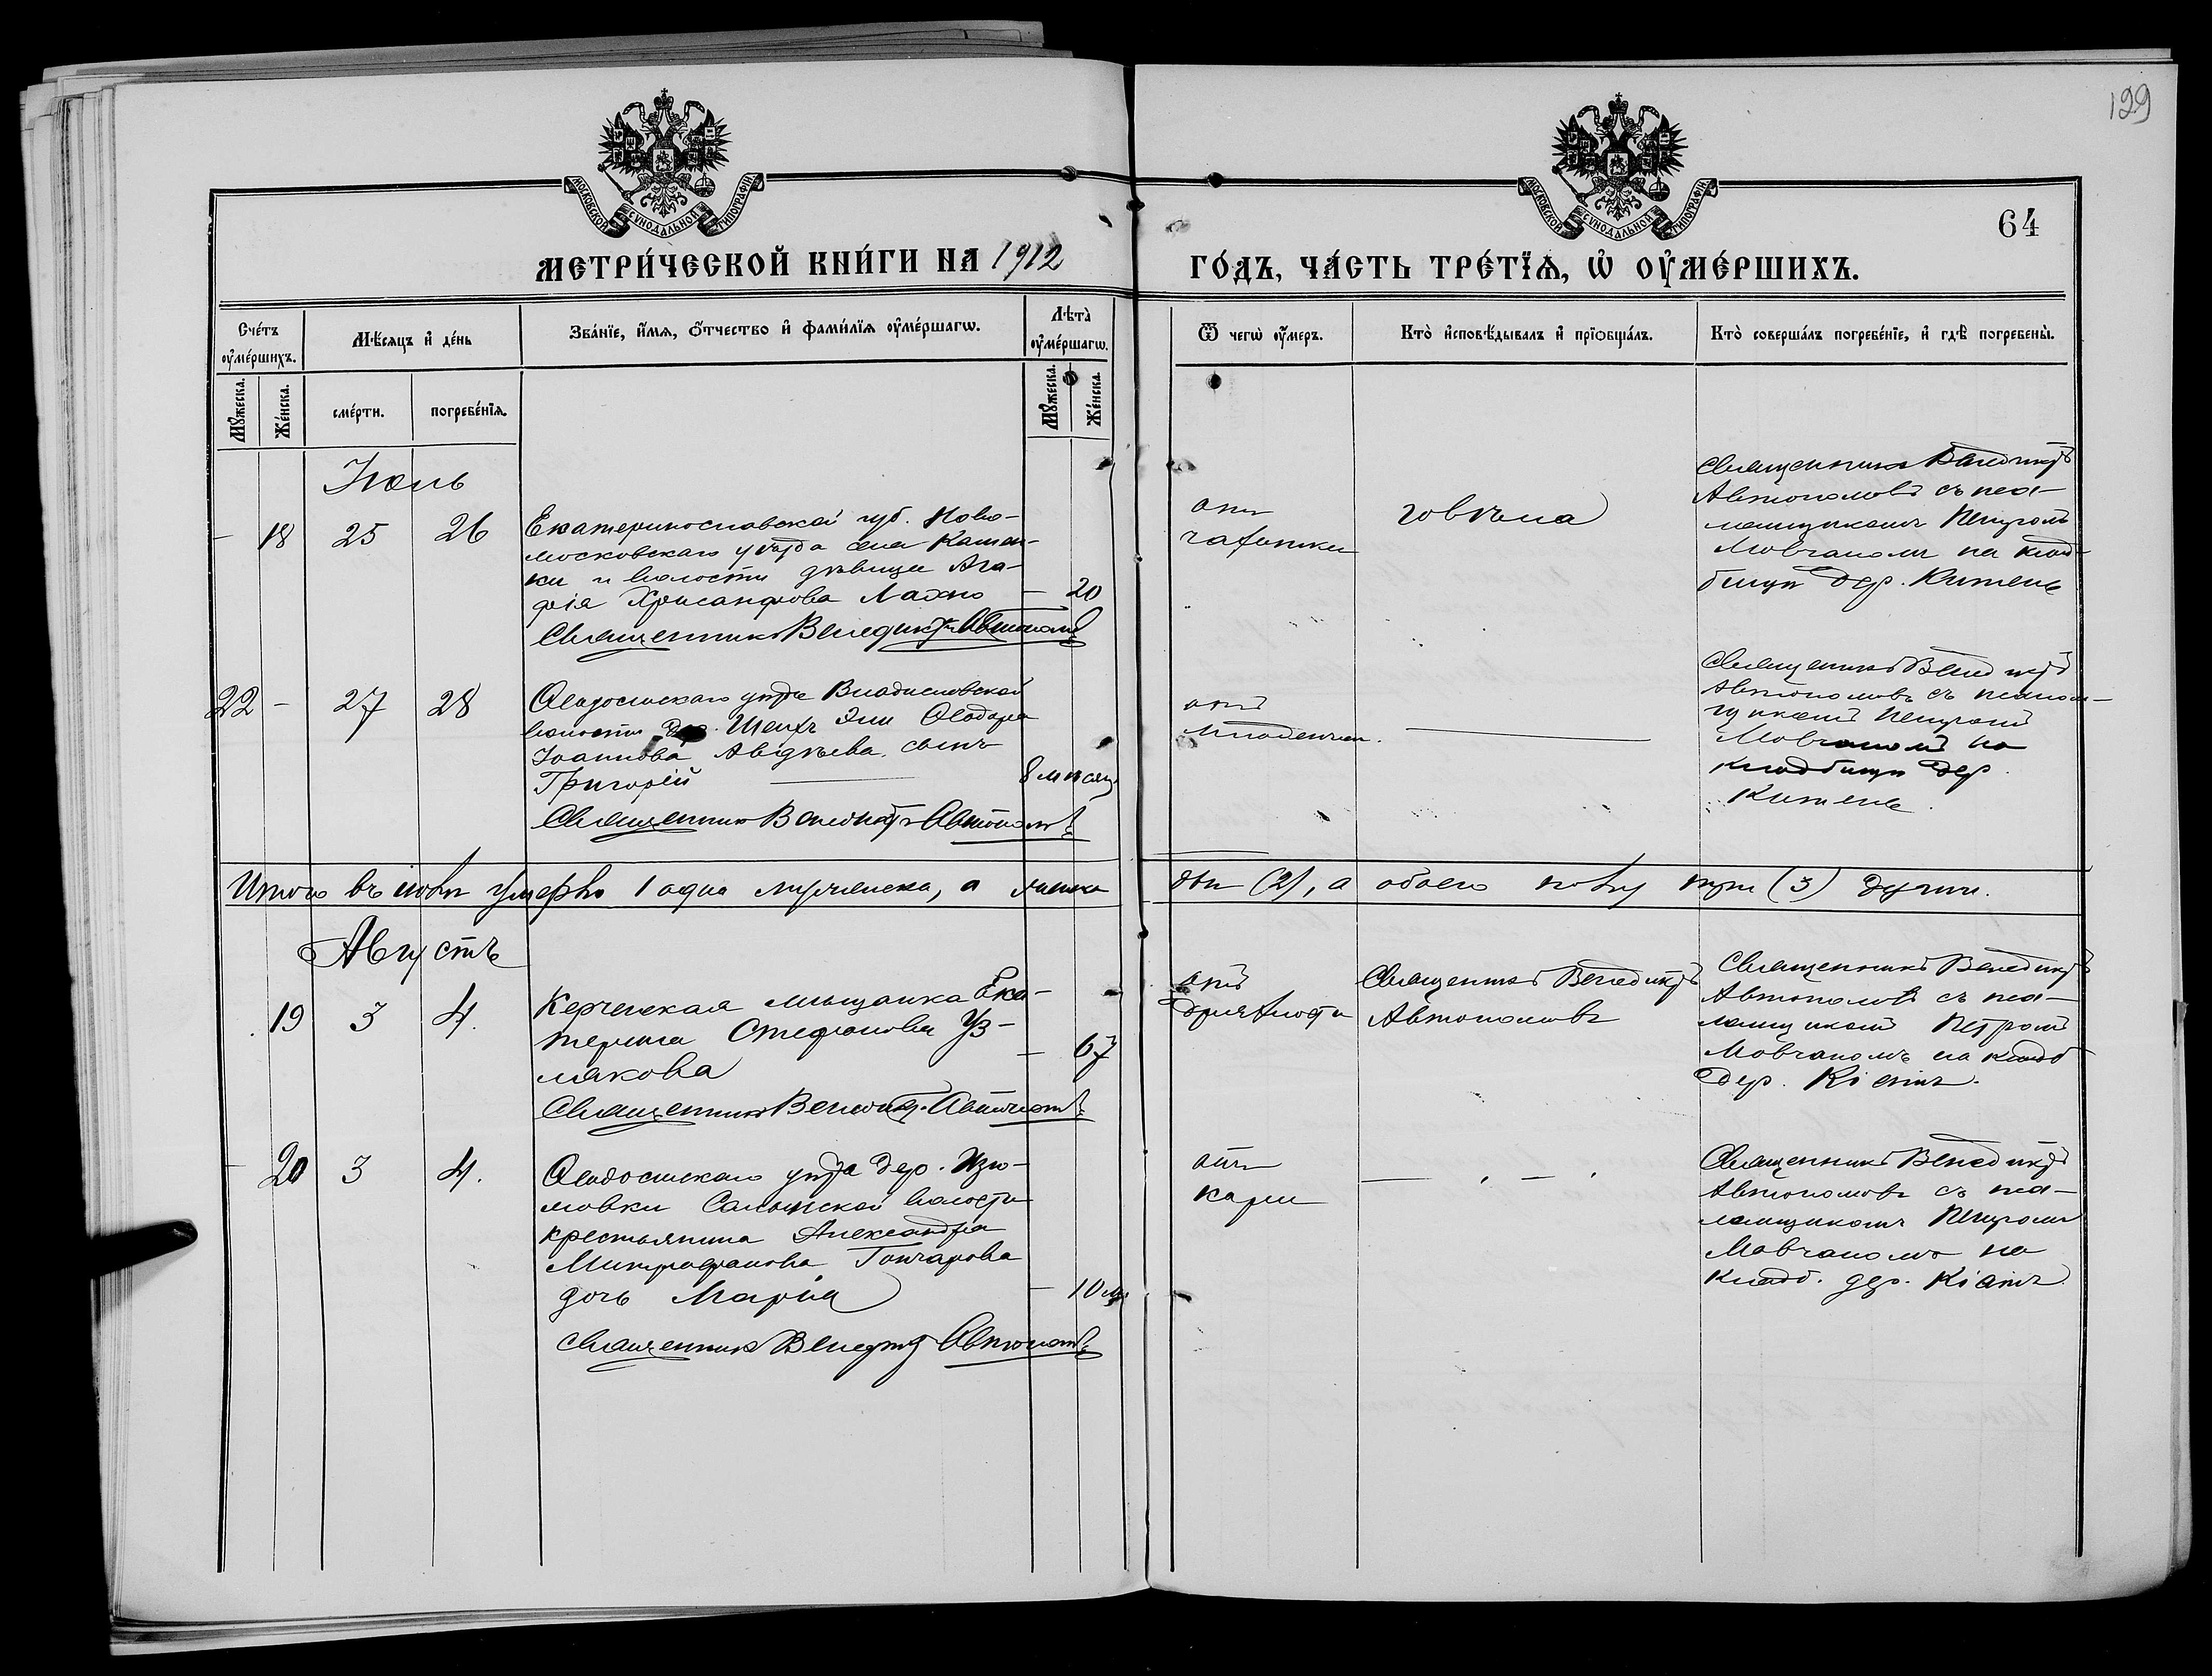 129
МОСКОВСКОЙ СѴНОДАЛЬНОЙ ТИПОГРАФІИ
МОСКОВСКОЙ СѴНОДАЛЬНОЙ ТИПОГРАФІИ
64
МЕТРИ́ЧЕСКОЙ КНИ́ГИ НА 1912 ГО́ДЪ, ЧА́СТЬ ТРЕ́ТЇѦ, Ѡ҆ ОУ҆МЕ́РШИХЪ.
Сче́тъ оу҆ме́ршихъ.
Мѣ́сяцъ и҆ де́нь
Зва́нїе, и҆́мѧ, ѻ҆́тчество и҆ фами́лїѧ оу҆ме́ршагѡ.
Лѣ́та оу҆ме́ршагѡ.
Ѿ чегѡ̀ оу҆́меръ.
Кто̀ и҆сповѣ́дывалъ и҆ прїѡбща́лъ.
Кто̀ соверша́лъ погребе́нїе, и҆ гдѣ̀ погребены̀.
Мꙋ́жеска.
Же́нска.
сме́рти.
погребе́нїѧ.
Мꙋ́жеска.
Же́нска.
Июль
— 18 25 26
Екатеринославской губ. Ново-
московскаго уѣзда села Камен-
ки и волости дѣвица Ага-
фія Хрисанфова Лахно — 20
Священникъ Венедиктъ Автономовъ
отъ
чахотки
говѣла
Священникъ Венедиктъ
Автономовъ съ пса-
ломщикомъ Петромъ
Мовчаномъ на клад-
бищѣ дер. Китень
22 — 27 28
Ѳеодосійскаго уѣзда Владиславской
волости дер. Шейхъ Эли Ѳеодора
Іоаннова Авдѣева сынъ
Григорій 8 мѣсяц
Священникъ Венедиктъ Автономовъ
отъ
младенчес. —
Священникъ Венедиктъ
Автономовъ съ псалом-
щикомъ Петромъ
Мовчаномъ на
кладбищѣ дер.
Китень.
Итого въ іюлѣ умерло 1 одна мужеска, а женска двѣ (2), а обоего полу три (3) души.
Августъ
19 3 4.
Керченская мѣщанка Ека-
терина Стефанова Уз-
лякова — 67
Священникъ Венедиктъ Автономовъ
отъ
дряхлости
Священникъ Венедиктъ
Автономовъ
Священникъ Венедиктъ
Автономовъ съ пса-
ломщикомъ Петромъ
Мовчаномъ на кладб
дер. Кіятъ.
— 20 3 4.
Ѳеодосійскаго уѣзда дер. Изю-
мовки Салынской волости
крестьянина Александра
Митрофанова Гончарова
дочь Марія — 10 м.
Священникъ Венедиктъ Автономовъ
отъ
кори
—
Священникъ Венедиктъ
Автономовъ съ пса-
ломщикомъ Петромъ
Мовчаномъ на
кладб. дер. Кіятъ